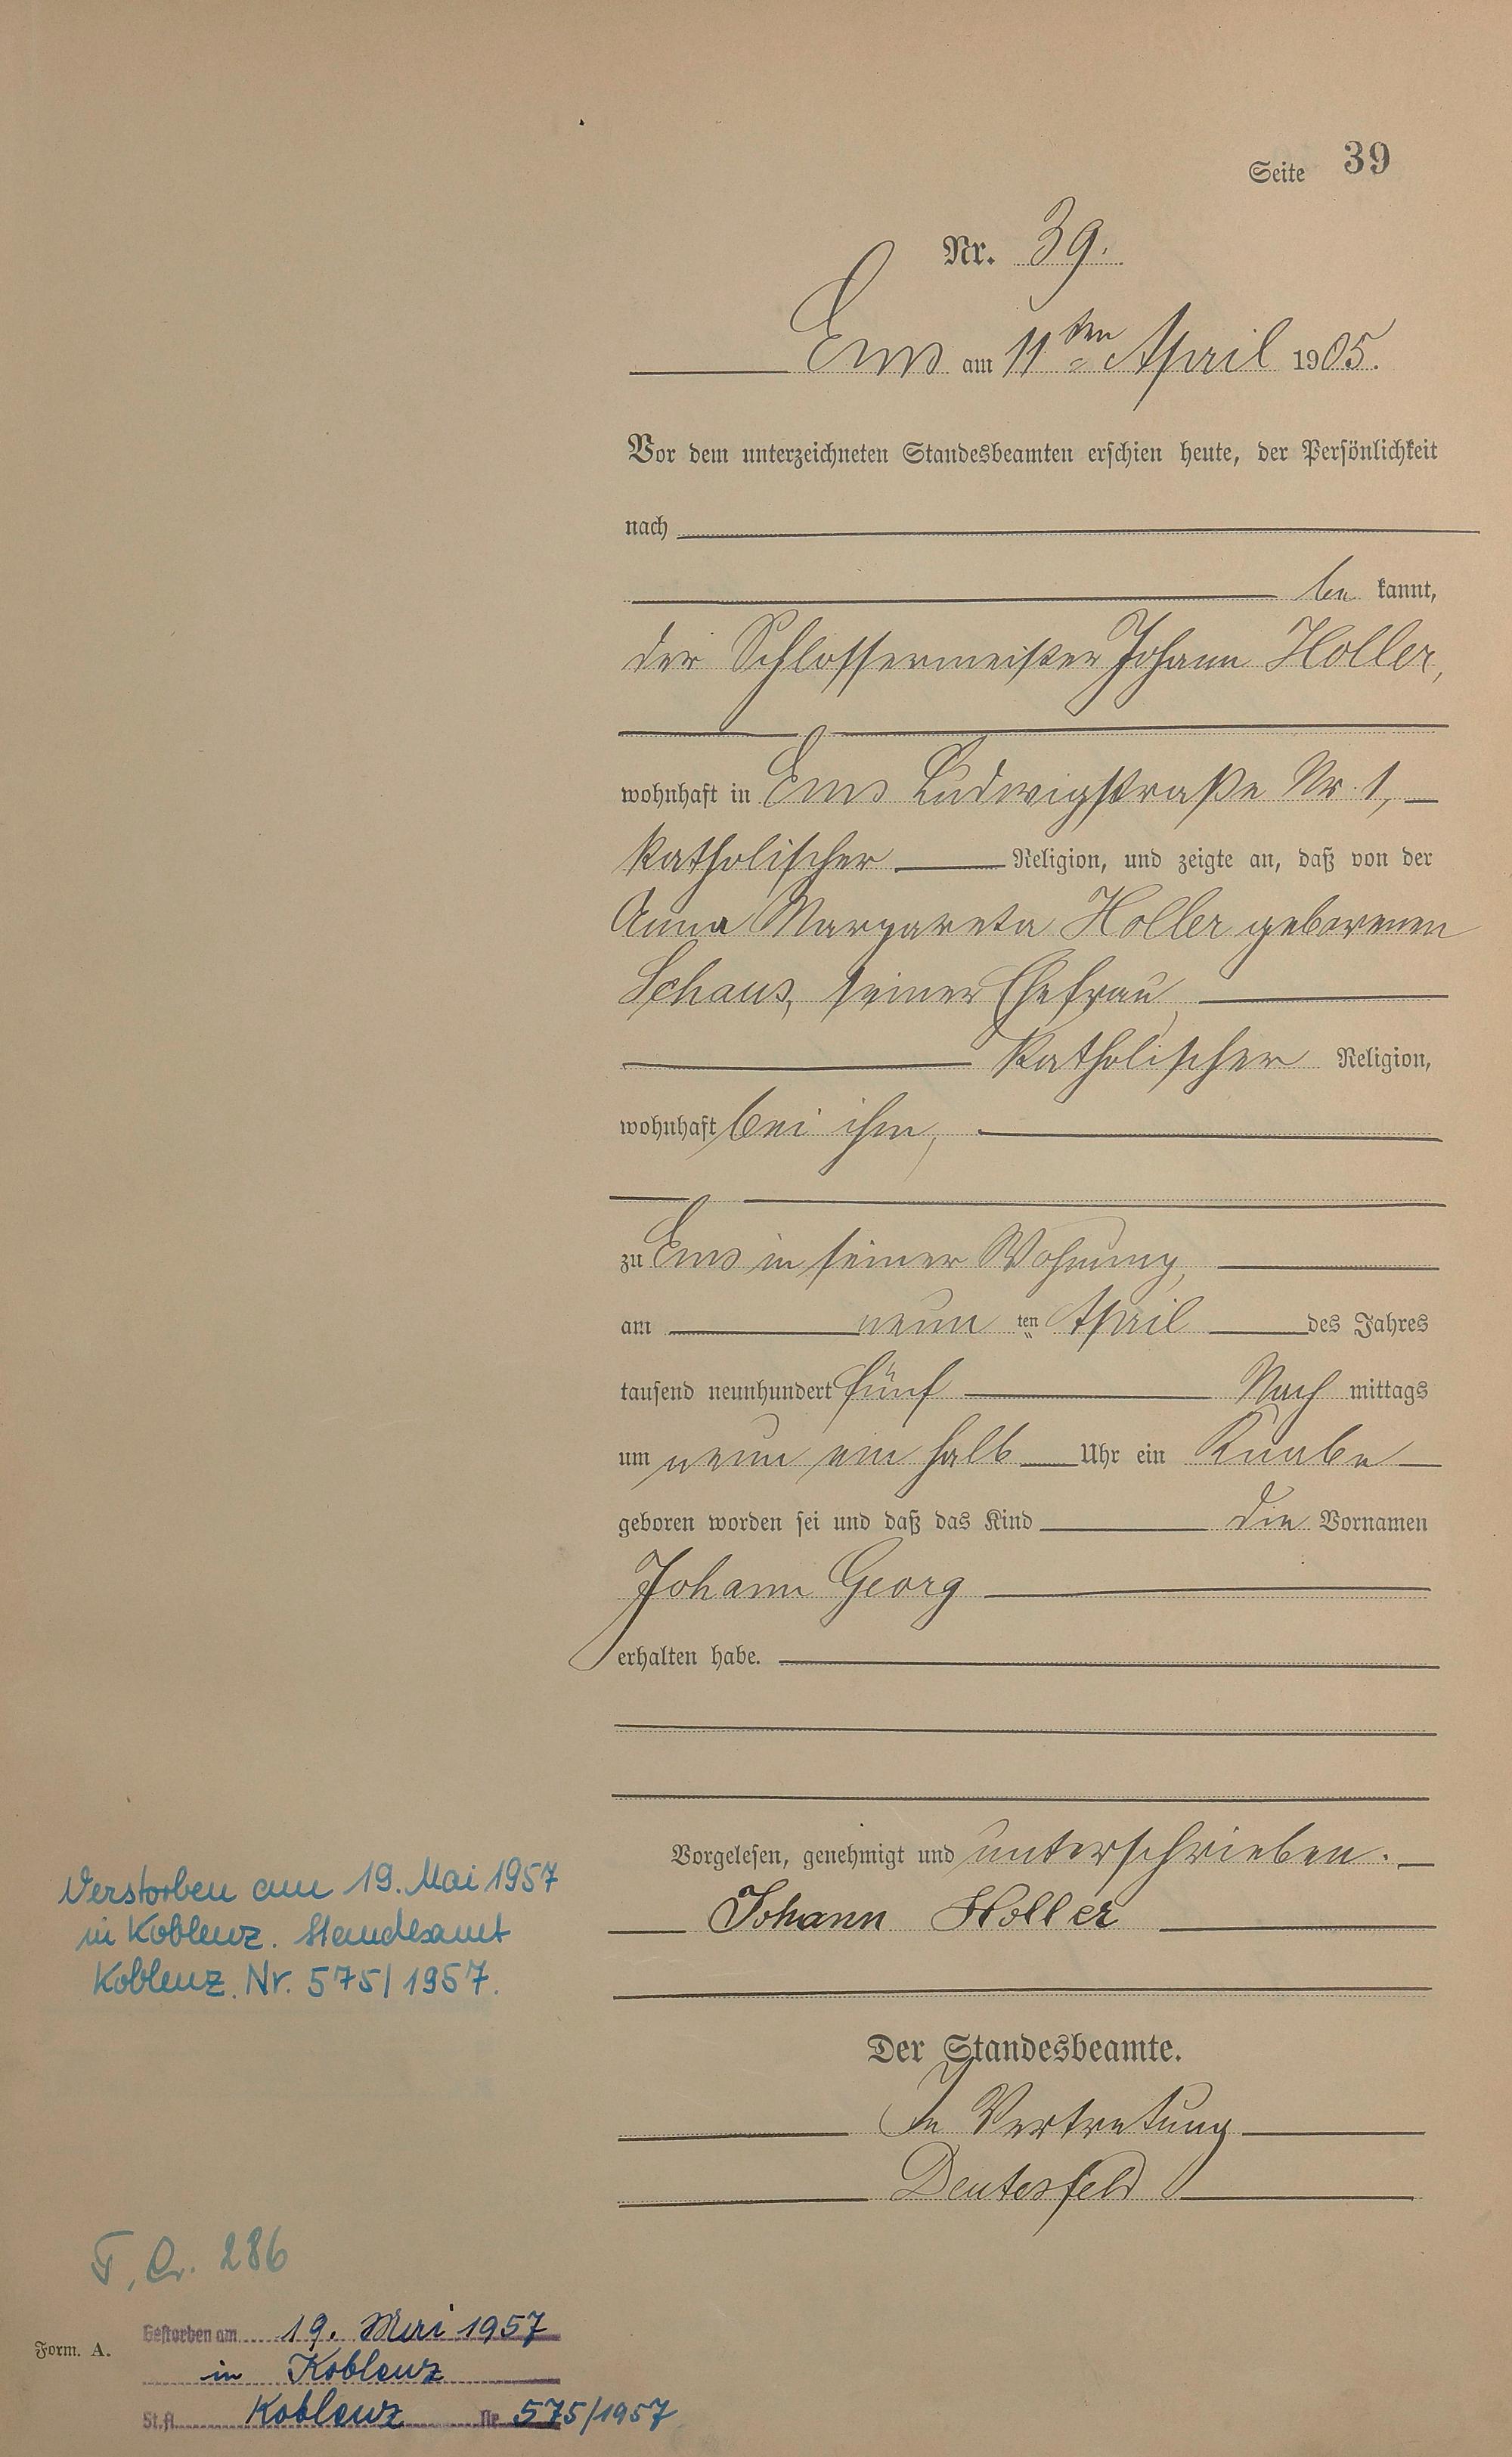 Seite 39
Nr. 39.
Ems am 11ten April 1905.
Vor dem unterzeichneten Standesbeamten erschien heute, der Persönlichkeit
nach
be kannt,
der Schlossermeister Johann Holler,
wohnhaft in Ems Ludwigstraße Nr. 1,
katholischer Religion, und zeigte an, daß von der
Anna Margareta Holler geborenen
Schaus, seiner Ehefrau,
katholischer Religion,
wohnhaft bei ihm,
zu Ems in seiner Wohnung,
am neun ten April des Jahres
tausend neunhundert fünf Nach mittags
um neun ein halb Uhr ein Knabe
geboren worden sei und daß das Kind die Vornamen
Johann Georg
erhalten habe.
Vorgelesen, genehmigt und unterschrieben.
Johann Holler
Der Standesbeamte.
In Vertretung
Deutesfeld
Verstorben am 19. Mai 1957
in Koblenz. Standesamt
Koblenz. Nr. 575/1957.
286
Form. A.
Gestorben am 19. Mai 1957
in Koblenz
St.A. Koblenz Nr 575/1957